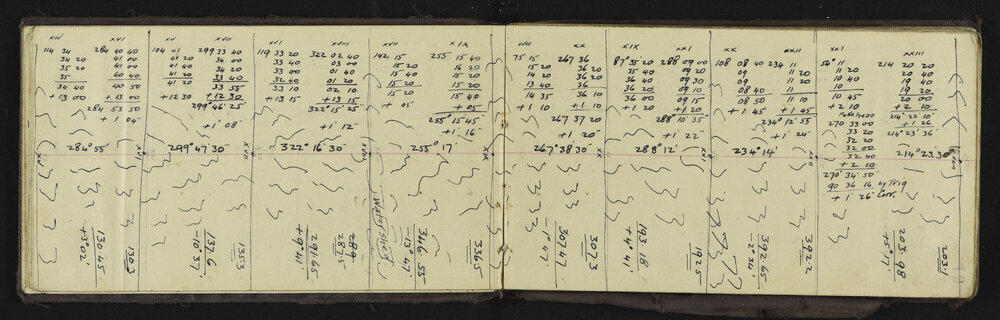 XIV XVI
114 34 284 40 40
34 20 41 00
35 20 41 00
35 40 40
34 40 40 50
+13 00 +13 00
284 53 50
+1 04
284° 55'
XVI
130.45
+3°02'
130.3
XV XVII
104 41 299 33 40
41 00 34 00
41 40 34 20
41 20 33 40
41 20 33 55
+12 30 +12 30
299° 46' 25
+1' 08"
299° 47' 30
XVII
137.6
-10° 37
135.3
XVI XVIII
119 33 20 322 02 40
33 40 03 00
33 00 01 40
32 40 01 20
33 10 02 10
+13 15 +13 15
322° 15' 25
+1' 12"
322° 16' 30"
291.65
+9° 41'
289
287.5
XVII XIX
142 15 255 15 40
15 20 16 20
15 40 15 20
15 20 15 20
15 20 15 40
+05 +05
255° 15' 45
+1' 16"
255° 17'
XIX
346.55
-13° 47'
336.5
XVIII XX
75 15 267 36
15 20 36 20
14 20 36 20
13 40 36
14 35 36 10
+1 10 +1 10
267 37 20
+1' 20"
267° 38 30
XX
307.47
-1° 47'
307.3
XIX XXI
87° 35 20 288 09 00
35 40 09 20
36 40 09 30
36 40 09 10
36 00 09 15
+1 20 +1 20
288° 10' 35"
+1' 22"
288° 12'
XXI
193.18
+4° 41'
192.5
XX XXII
108 08 40 234 11
09 11 20
09 11 20
08 40 11
08 50 11 10
+1 45 +1 45
234° 12' 55
+1' 24"
234° 14'
XXII
392.65
-2° 34'
392.2
XXI XXIII
54° 11 214 20 20
11 20 20 40
10 40 19 40
11 19 20
10 45 20 00
+2 10 +2 10
214° 22' 10"
270 33 00 +1' 26
33 20 214° 23' 36"
32 00
32 40
+2 10
270° 34' 50"
90 36 16 by Trig
+1' 26" Corr.
214° 23' 30"
XXIII
203.98
+5° 17'
203.1